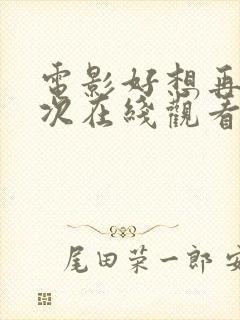 電影好想再
次在綫觀看
尾田荣一郎 安